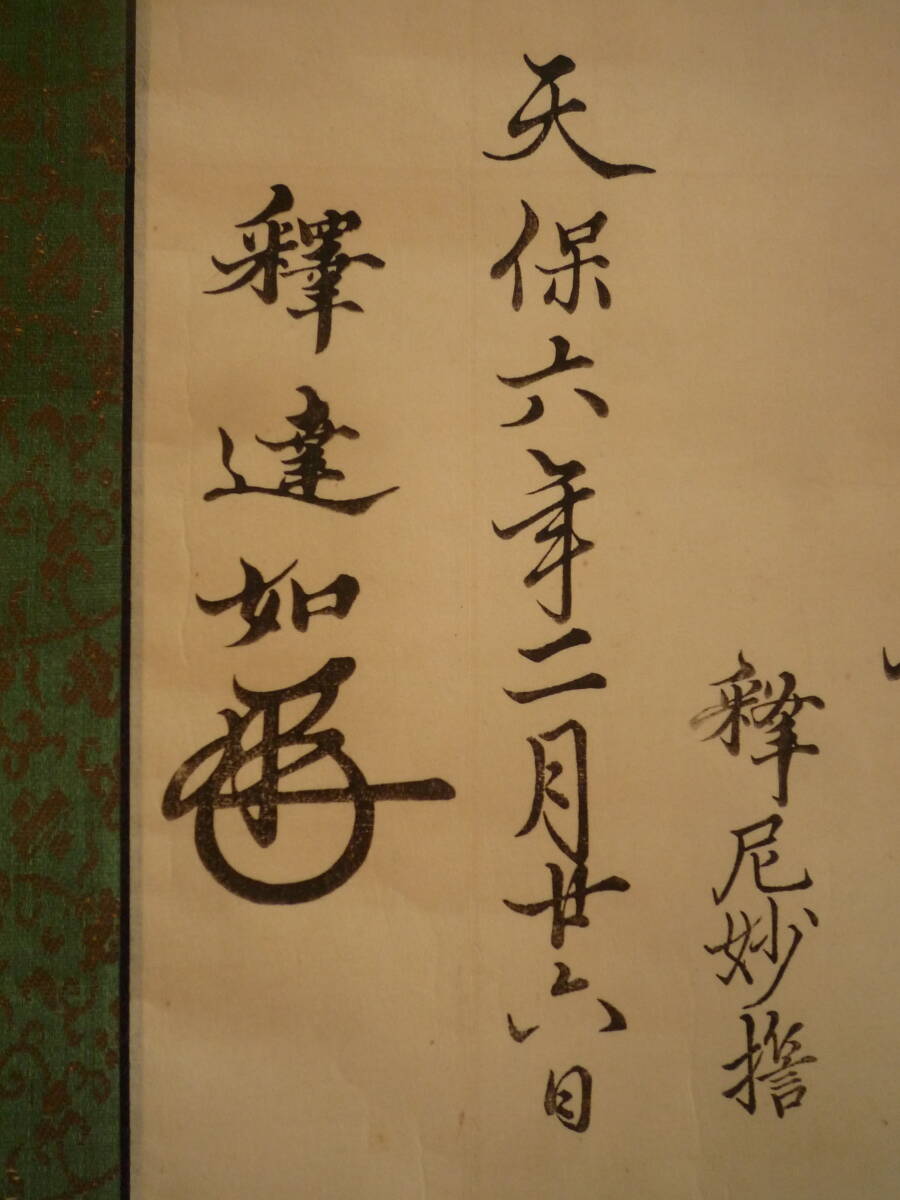 釋尼妙
天保六年二月廿六日
釋達如